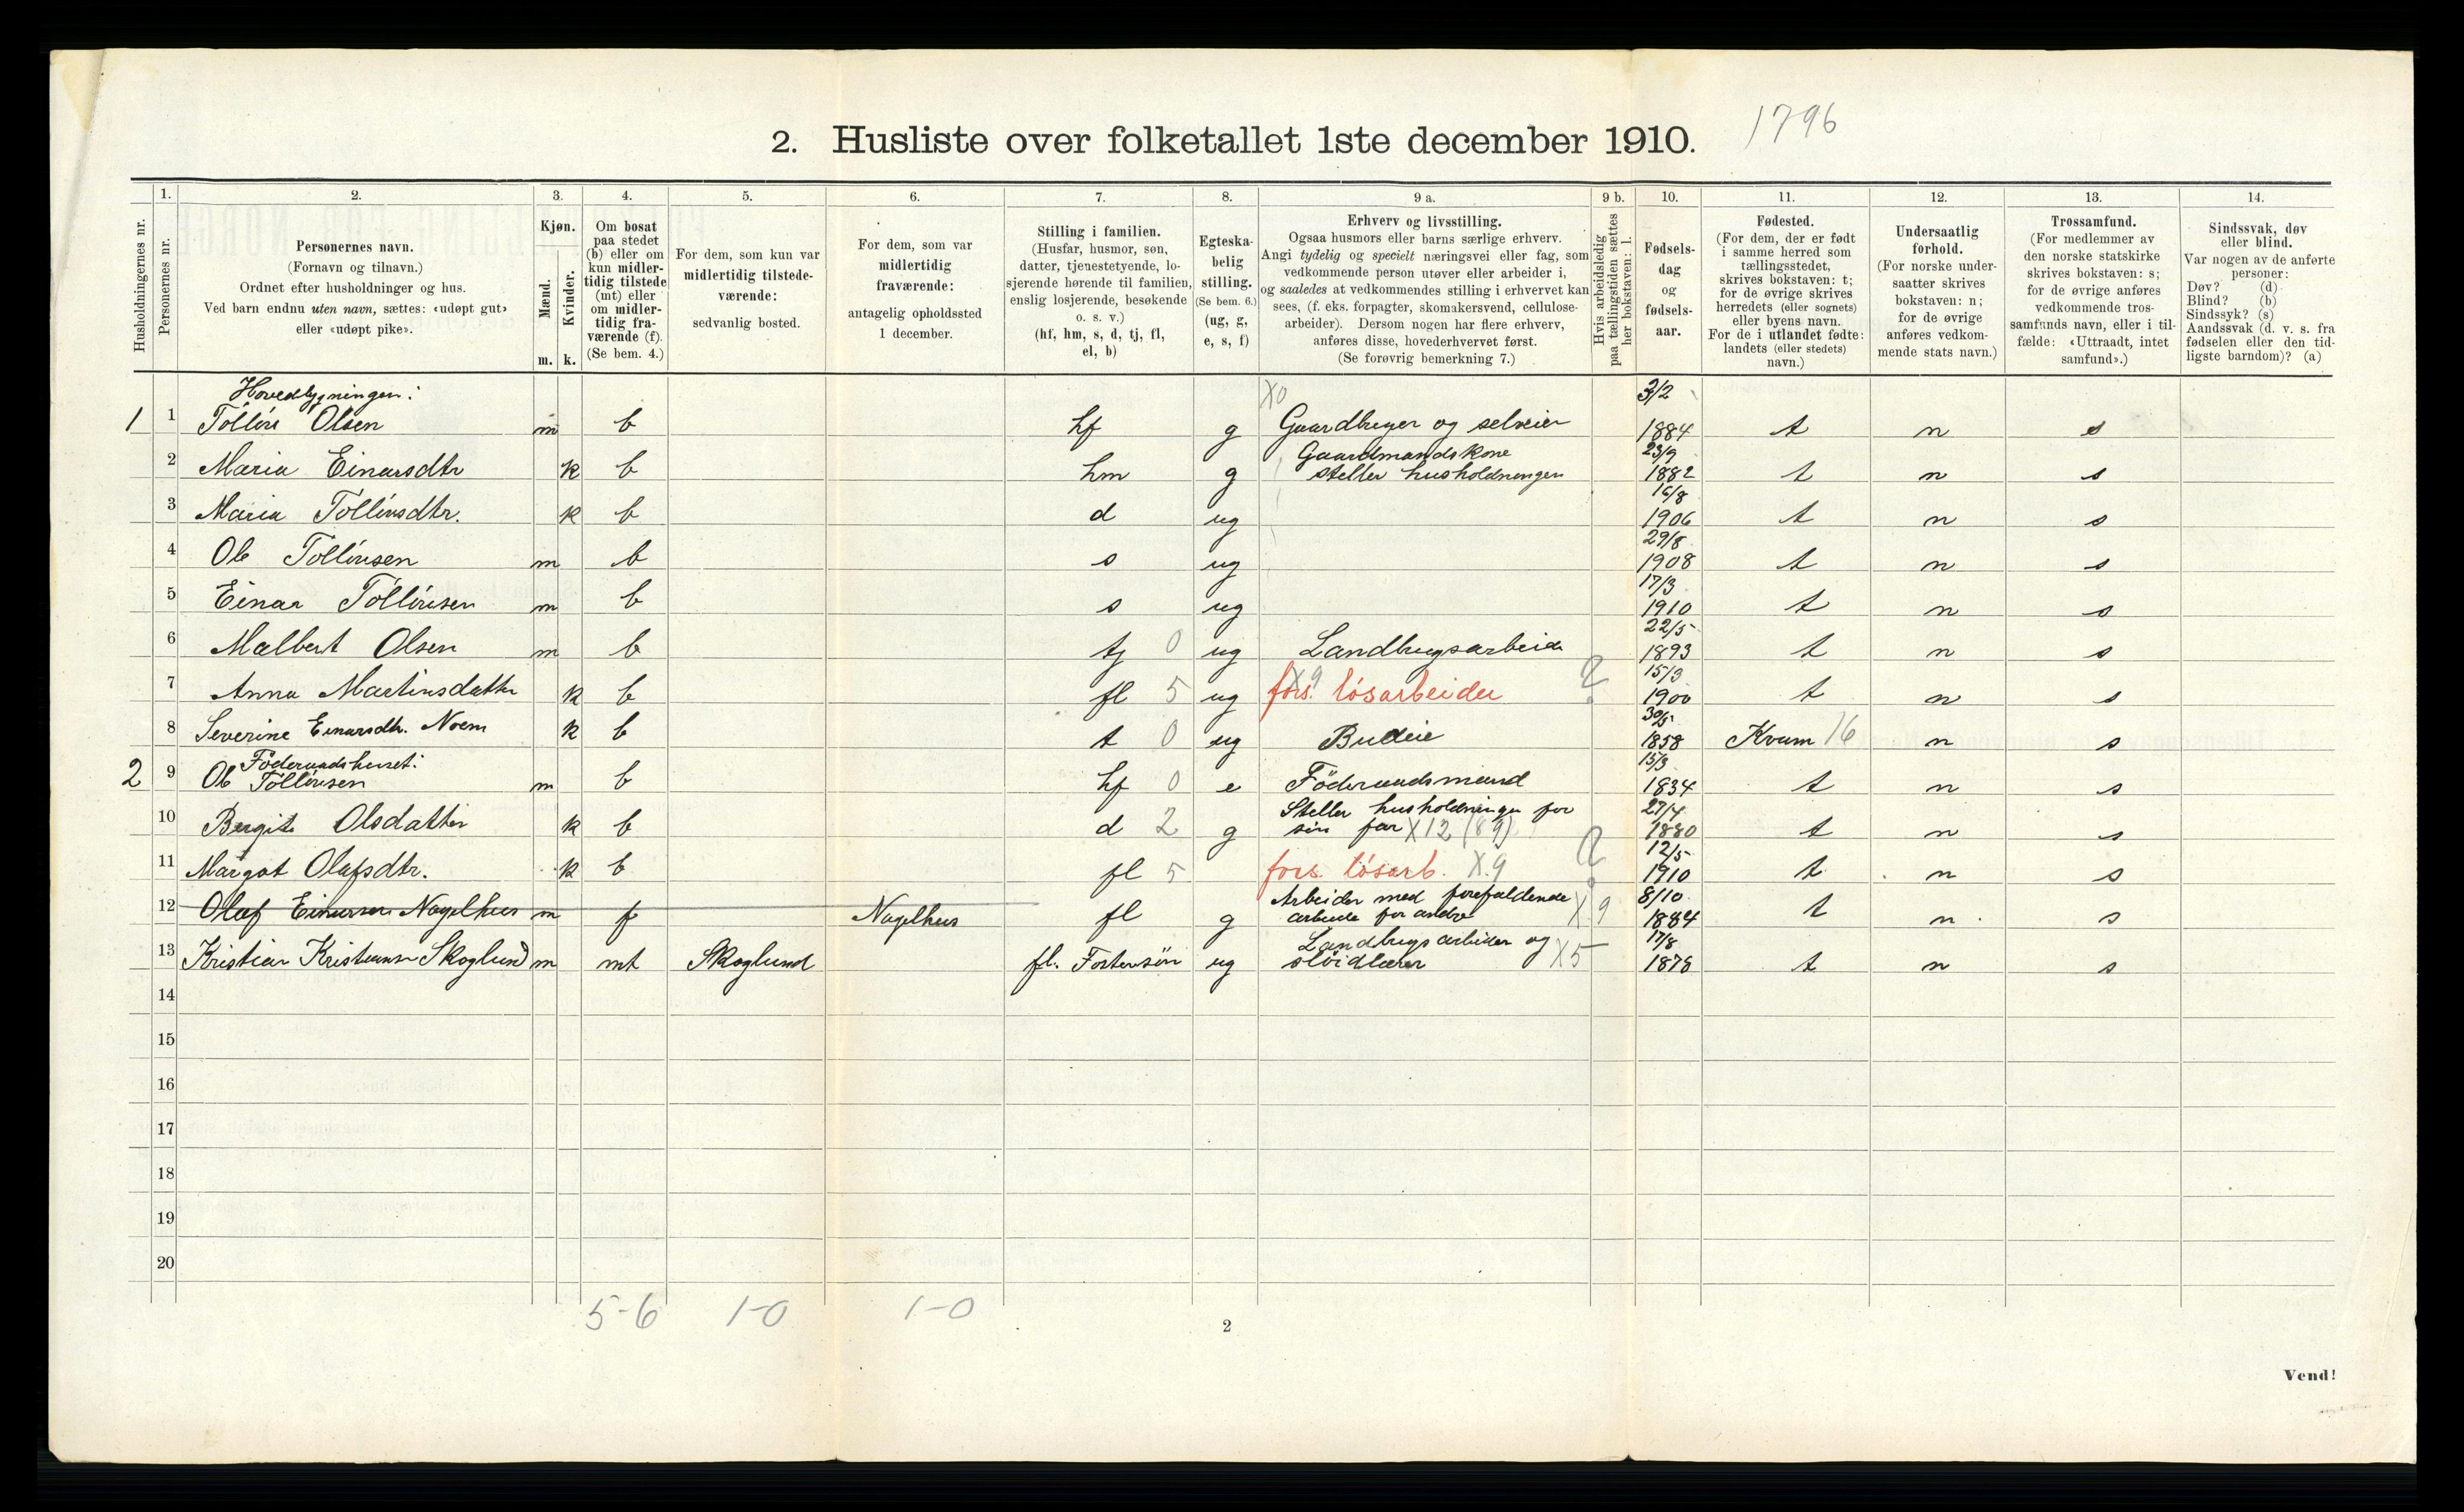 1796
2. Husliste over folketallet 1ste december 1910.
Husholdningernes nr.
1.
Personernes nr.
2.
Personernes navn.
(Fornavn og tilnavn.)
Ordnet efter husholdninger og hus.
Ved barn endnu uten navn, sættes: «udøpt gut»
eller «udøpt pike».
3.
Kjøn.
Mænd.
Kvinder.
m. k.
4.
Om bosat
paa stedet
(b) eller om
kun midler-
tidig tilstede
(mt) eller
om midler-
tidig fra-
værende (f).
(Se bem. 4.)
5.
For dem, som kun var
midlertidig tilstede-
værende:
sedvanlig bosted.
6.
For dem, som var
midlertidig
fraværende:
antagelig opholdssted
1 december.
7.
Stilling i familien.
(Husfar, husmor, søn,
datter, tjenestetyende, lo-
sjerende hørende til familien,
enslig losjerende, besøkende
o. s. v.)
(hf, hm, s, d, tj, fl,
el, b)
8.
Egteska-
belig
stilling.
(Se bem. 6.)
(ug, g,
e, s, f)
9 a.
Erhverv og livsstilling.
Ogsaa husmors eller barns særlige erhverv.
Angi tydelig og specielt næringsvei eller fag, som
vedkommende person utøver eller arbeider i,
og saaledes at vedkommendes stilling i erhvervet kan
sees, (f. eks. forpagter, skomakersvend, cellulose-
arbeider). Dersom nogen har flere erhverv,
anføres disse, hovederhvervet først.
(Se forøvrig bemerkning 7.)
9 b.
Hvis arbeidsledig
paa tællingstiden sættes
her bokstaven: l.
10.
Fødsels-
dag
og
fødsels-
aar.
11.
Fødested.
(For dem, der er født
i samme herred som
tællingsstedet,
skrives bokstaven: t;
for de øvrige skrives
herredets (eller sognets)
eller byens navn.
For de i utlandet fødte:
landets (eller stedets)
navn.)
12.
Undersaatlig
forhold.
(For norske under-
saatter skrives
bokstaven: n;
for de øvrige
anføres vedkom-
mende stats navn.)
13.
Trossamfund.
(For medlemmer av
den norske statskirke
skrives bokstaven: s;
for de øvrige anføres
vedkommende tros-
samfunds navn, eller i til-
fælde: «Uttraadt, intet
samfund».)
14.
Sindssvak, døv
eller blind.
Var nogen av de anførte
personer:
Døv? (d)
Blind? (b)
Sindssyk? (s)
Aandssvak (d. v. s. fra
fødselen eller den tid-
ligste barndom)? (a)
Hovedbygningen: X0 3/2
1 1 Tollöv Olsen m b hf g Gaardbruger og selveier 1884 t n s
Gaardmandskone 23/9
2 Maria Einarsdtr k b hm g steller husholdningen 1882 t n s
16/8
3 Maria Tollövsdtr. k b d ug 1906 t n s
29/8
4 Ole Tollövsen m b s ug 1908 t n s
17/3
5 Einar Tollövsen m b s ug 1910 t n s
22/5
6 Malbert Olsen m b tj 0 ug Landbrugsarbeide 1893 t n s
15/3
7 Anna Martinsdatter k b fl 5 ug X9 fors. løsarbeider ? 1900 t n s
30/5
8 Severine Einarsdtr. Noem k b t 0 ug Budeie 1858 Kvam 16 n s
Föderaadshuset: 15/3
2 9 Ole Tollövsen m b hf 0 e Föderaadsmand 1834 t n s
Steller husholdningen for 27/4
10 Bergite Olsdatter k b d 2 g sin far X12 (89) 1880 t n s
12/5
11 Margot Olafsdtr. k b fl 5 fors. løsarb. X.9 ? 1910 t n s
Arbeider med forefaldende 8/10
12 Olaf Einarsen Nagelhus m f Nagelhus fl g arbeide for andre X 9 1884 t n s
Landbrugsarbeider og 17/8
13 Kristian Kristiansen Skoglund m mt Skoglund fl. Fostersön ug slöidlærer X5 1878 t n s
14
15
16
17
18
19
20
5-6 1-0 1-0
2
Vend!